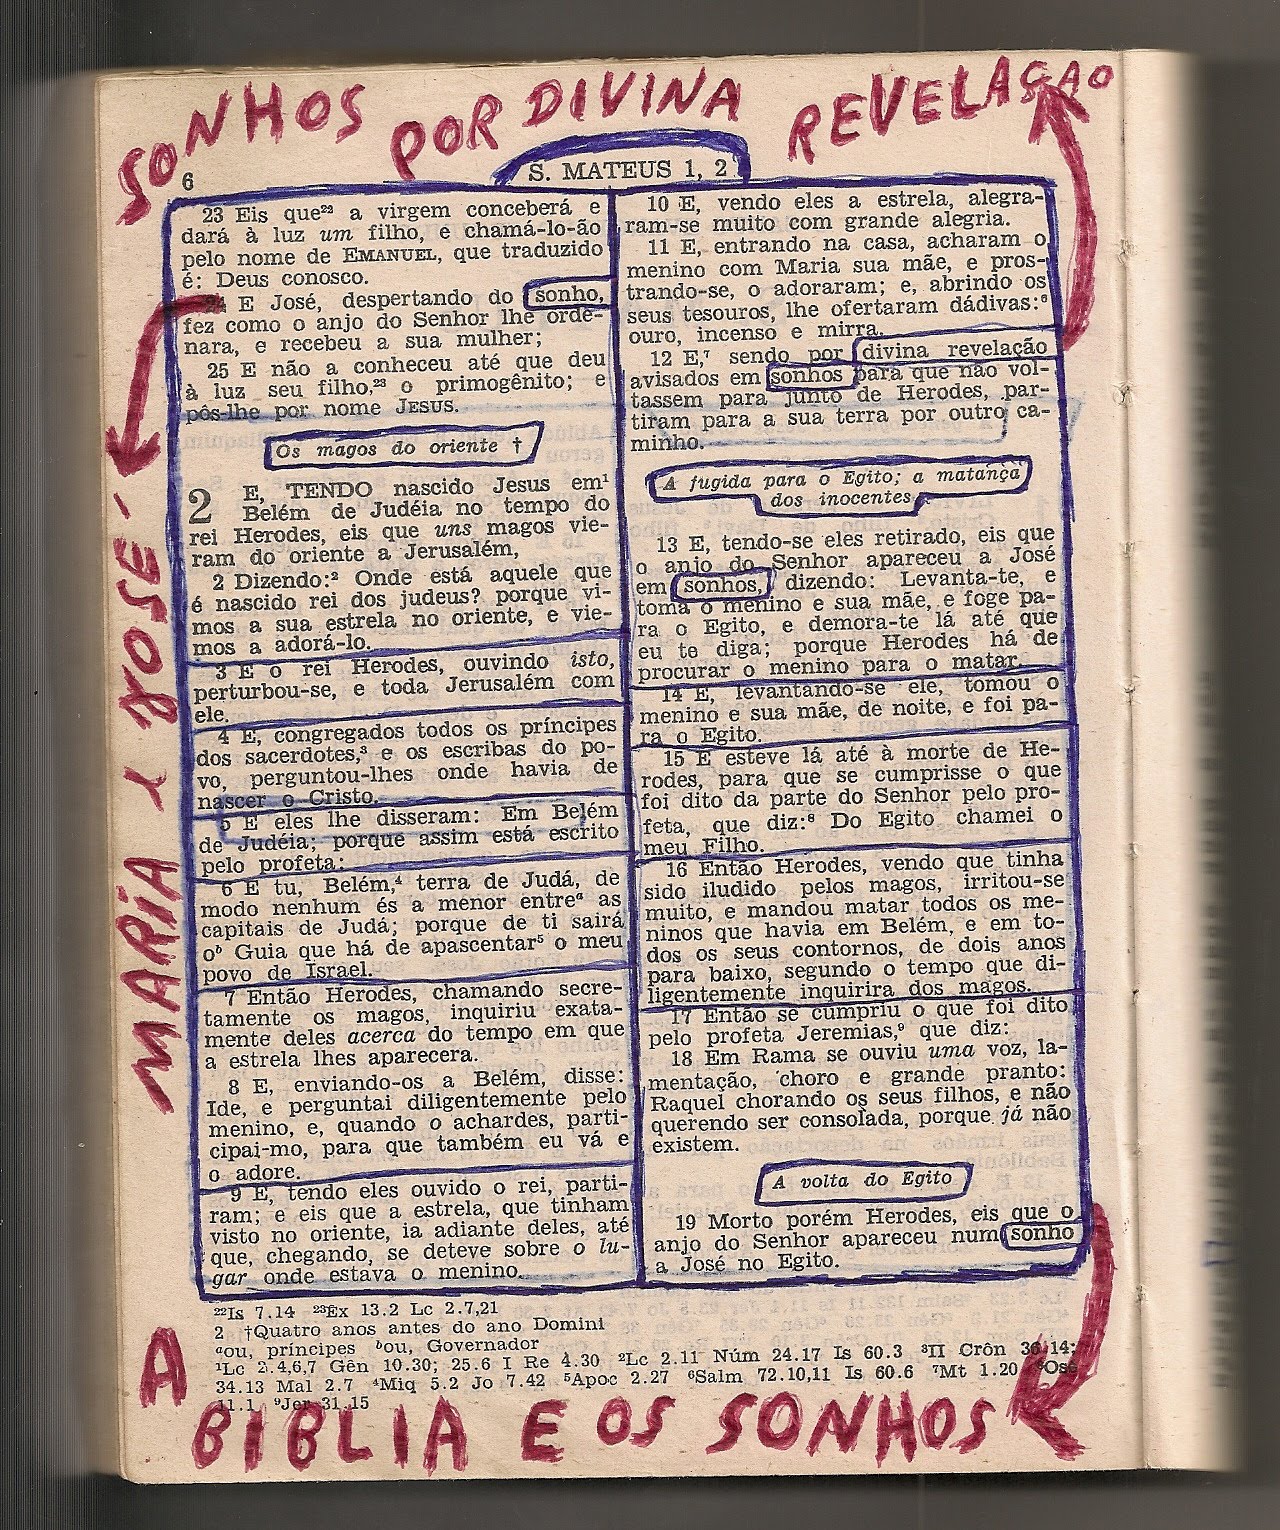 SONHOS POR DIVINA REVELAÇAO
6
S. MATEUS 1, 2
23 Eis que²² a virgem conceberá e
dará à luz um filho, e chamá-lo-ão
pelo nome de EMANUEL, que traduzido
é: Deus conosco.
24 E José, despertando do sonho,
fez como o anjo do Senhor lhe orde-
nara, e recebeu a sua mulher;
25 E não a conheceu até que deu
à luz seu filho,²³ o primogênito; e
pôs-lhe por nome JESUS.
Os magos do oriente †
2 E, TENDO nascido Jesus em¹
Belém de Judéia no tempo do
rei Herodes, eis que uns magos vie-
ram do oriente a Jerusalém,
2 Dizendo:² Onde está aquele que
é nascido rei dos judeus? porque vi-
mos a sua estrela no oriente, e vie-
mos a adorá-lo.
3 E o rei Herodes, ouvindo isto,
perturbou-se, e toda Jerusalém com
ele.
4 E, congregados todos os príncipes
dos sacerdotes,³ e os escribas do po-
vo, perguntou-lhes onde havia de
nascer o Cristo.
5 E eles lhe disseram: Em Belém
de Judéia; porque assim está escrito
pelo profeta:
6 E tu, Belém,⁴ terra de Judá, de
modo nenhum és a menor entreᵃ as
capitais de Judá; porque de ti sairá
oᵇ Guia que há de apascentar⁵ o meu
povo de Israel.
7 Então Herodes, chamando secre-
tamente os magos, inquiriu exata-
mente deles acerca do tempo em que
a estrela lhes aparecera.
8 E, enviando-os a Belém, disse:
Ide, e perguntai diligentemente pelo
menino, e, quando o achardes, parti-
cipai-mo, para que também eu vá e
o adore.
9 E, tendo eles ouvido o rei, parti-
ram; e eis que a estrela, que tinham
visto no oriente, ia adiante deles, até
que, chegando, se deteve sobre o lu-
gar onde estava o menino.
10 E, vendo eles a estrela, alegra-
ram-se muito com grande alegria.
11 E, entrando na casa, acharam o
menino com Maria sua mãe, e pros-
trando-se, o adoraram; e, abrindo os
seus tesouros, lhe ofertaram dádivas:⁶
ouro, incenso e mirra.
12 E,⁷ sendo por divina revelação
avisados em sonhos para que não vol-
tassem para junto de Herodes, par-
tiram para a sua terra por outro ca-
minho.
A fugida para o Egito; a matança
dos inocentes
13 E, tendo-se eles retirado, eis que
o anjo do Senhor apareceu a José
em sonhos, dizendo: Levanta-te, e
toma o menino e sua mãe, e foge pa-
ra o Egito, e demora-te lá até que
eu te diga; porque Herodes há de
procurar o menino para o matar.
14 E, levantando-se ele, tomou o
menino e sua mãe, de noite, e foi pa-
ra o Egito.
15 E esteve lá até à morte de He-
rodes, para que se cumprisse o que
foi dito da parte do Senhor pelo pro-
feta, que diz:⁸ Do Egito chamei o
meu Filho.
16 Então Herodes, vendo que tinha
sido iludido pelos magos, irritou-se
muito, e mandou matar todos os me-
ninos que havia em Belém, e em to-
dos os seus contornos, de dois anos
para baixo, segundo o tempo que di-
ligentemente inquirira dos magos.
17 Então se cumpriu o que foi dito
pelo profeta Jeremias,⁹ que diz:
18 Em Rama se ouviu uma voz, la-
mentação, choro e grande pranto:
Raquel chorando os seus filhos, e não
querendo ser consolada, porque já não
existem.
A volta do Egito
19 Morto porém Herodes, eis que o
anjo do Senhor apareceu num sonho
a José no Egito.
²²Is 7.14 ²³Ex 13.2 Lc 2.7,21
2 †Quatro anos antes do ano Domini
ᵃou, príncipes ᵇou, Governador
¹Lc 2.4,6,7 Gên 10.30; 25.6 I Re 4.30 ²Lc 2.11 Núm 24.17 Is 60.3 ³II Crôn 36.14;
34.13 Mal 2.7 ⁴Miq 5.2 Jo 7.42 ⁵Apoc 2.27 ⁶Salm 72.10,11 Is 60.6 ⁷Mt 1.20 ⁸Osé
11.1 ⁹Jer 31.15
MARIA e JOSE-
A BIBLIA E OS SONHOS